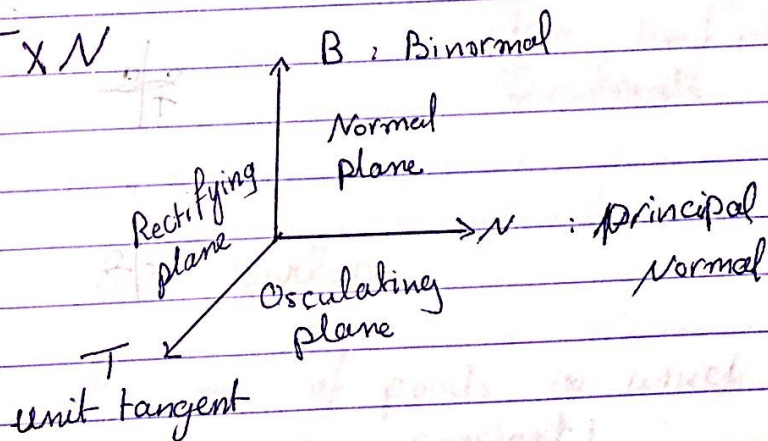 T x N
B : Binormal
Normal
plane
Rectifying
plane
N : principal
Normal
Osculating
plane
T
unit tangent